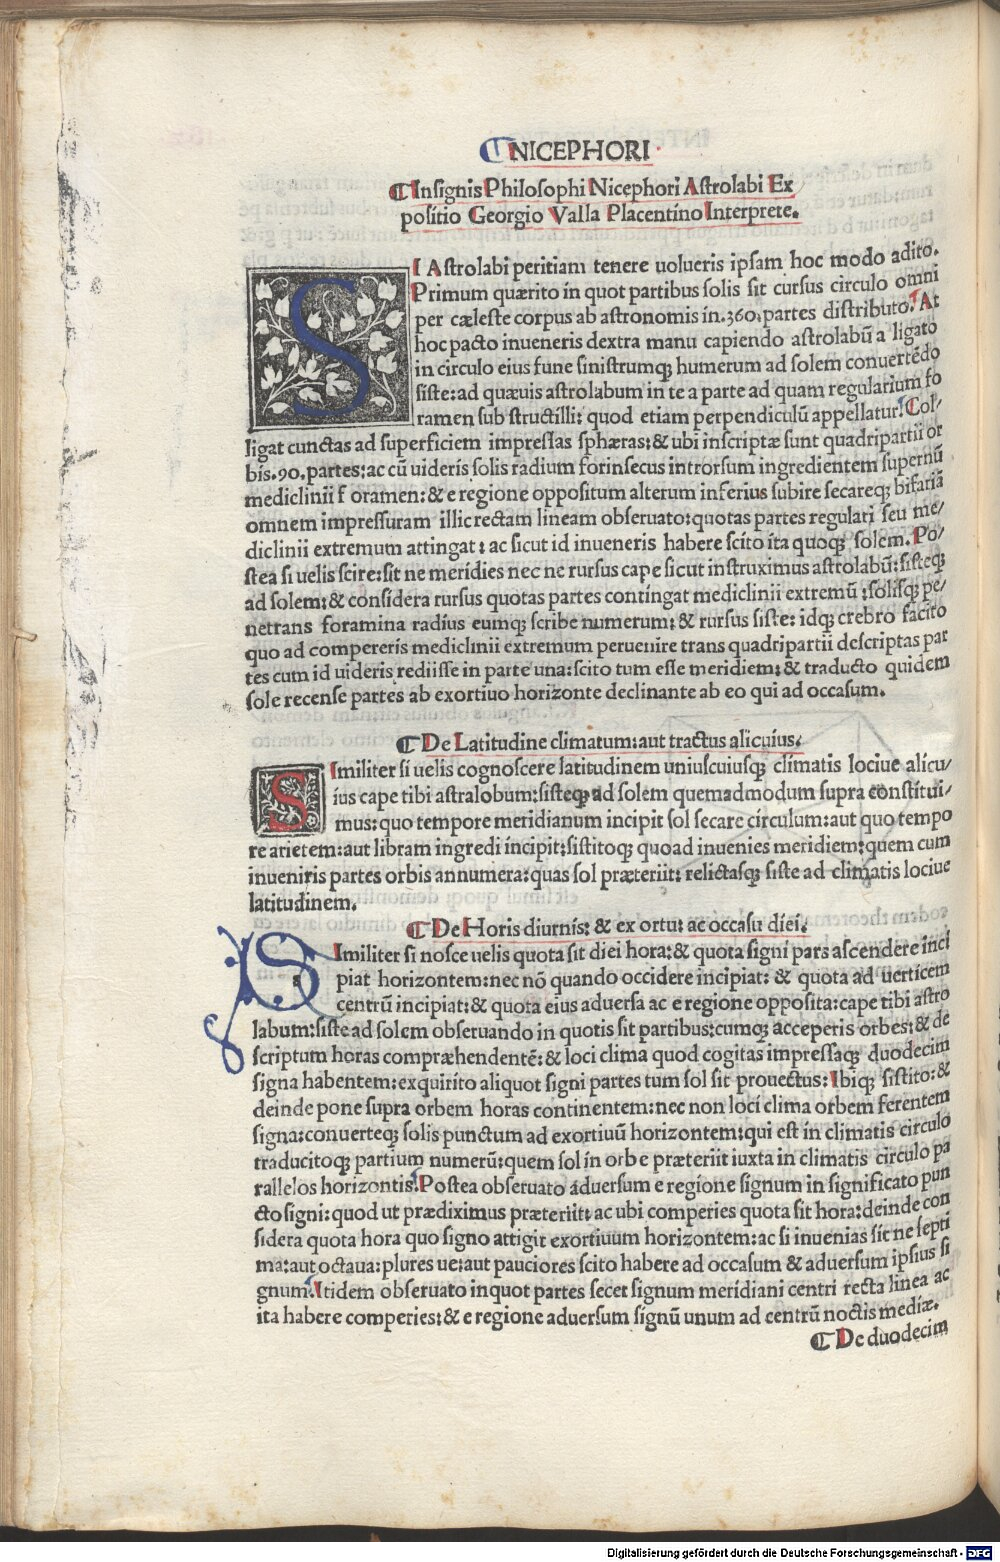 NICEPHORI
¶ Insignis Philosophi Nicephori Astrolabi Ex/
positio Georgio Valla Placentino Interprete.
SI Astrolabi peritiam tenere uolueris ipsam hoc modo adito.
Primum quærito in quot partibus solis sit cursus circulo omni
per cæleste corpus ab astronomis in .360. partes distributo. At
hoc pacto inueneris dextra manu capiendo astrolabũ a ligato
in circulo eius fune sinistrumq; humerum ad solem conuertẽdo
siste: ad quæuis astrolabum in te a parte ad quam regularium fo
ramen sub structilli: quod etiam perpendiculũ appellatur. Col/
ligat cunctas ad superficiem impressas sphæras: & ubi inscriptæ sunt quadripartii or
bis .90. partes: ac cũ uideris solis radium forinsecus introrsum ingredientem supernũ
mediclinii f oramen: & e regione oppositum alterum inferius subire secareq; bifariã
omnem impressuram illic rectam lineam obseruato: quotas partes regulari seu me/
diclinii extremum attingat: ac sicut id inueneris habere scito ita quoq; solem. Po/
stea si uelis scire: sit ne meridies nec ne rursus cape sicut instruximus astrolabũ: sisteq;
ad solem: & considera rursus quotas partes contingat mediclinii extremũ: solisq; pe/
netrans foramina radius eumq; scribe numerum: & rursus siste: idq; crebro facito
quo ad compereris mediclinii extremum peruenire trans quadripartii descriptas par
tes cum id uideris rediisse in parte una: scito tum esse meridiem: & traducto quidem
sole recense partes ab exortiuo horizonte declinante ab eo qui ad occasum.
¶ De Latitudine climatum: aut tractus alicuius.
SImiliter si uelis cognoscere latitudinem uniuscuiusq; climatis lociue alicu/
ius cape tibi astralobum: sisteq; ad solem quemadmodum supra constitui/
mus: quo tempore meridianum incipit sol secare circulum: aut quo tempo
re arietem: aut libram ingredi incipit: sistitoq; quoad inuenies meridiem: quem cum
inueniris partes orbis annumera: quas sol præteriit: relictasq; siste ad climatis lociue
latitudinem.
¶ De Horis diurnis: & ex ortu: ac occasu diei.
SImiliter si nosce uelis quota sit diei hora: & quota signi pars ascendere inci
piat horizontem: nec nõ quando occidere incipiat: & quota ad uerticem
centrũ incipiat: & quota eius aduersa ac e regione opposita: cape tibi astro
labum: siste ad solem obseruando in quotis sit partibus: cumq; acceperis orbes: & de
scriptum horas compræhendentẽ: & loci clima quod cogitas impressaq; duodecim
signa habentem: exquirito aliquot signi partes tum sol sit prouectus: Ibiq; sistito: &
deinde pone supra orbem horas continentem: nec non loci clima orbem ferentem
signa: conuerteq; solis punctum ad exortiuũ horizontem: qui est in climatis circulo
traducitoq; partium numerũ: quem sol in orbe præteriit iuxta in climatis circulo pa
rallelos horizontis. Postea obseruato aduersum e regione signum in significato pun
cto signi: quod ut prædiximus præteriit: ac ubi comperies quota sit hora: deinde con
sidera quota hora quo signo attigit exortiuum horizontem: ac si inuenias sit ne septi
ma: aut octaua: plures ue: aut pauciores scito habere ad occasum & aduersum ipsius si
gnum. Itidem obseruato in quot partes secet signum meridiani centri recta linea ac
ita habere comperies: & e regione aduersum signũ unum ad centrũ noctis mediæ.
¶ De duodecim
Digitalisierung gefördert durch die Deutsche Forschungsgemeinschaft - DFG